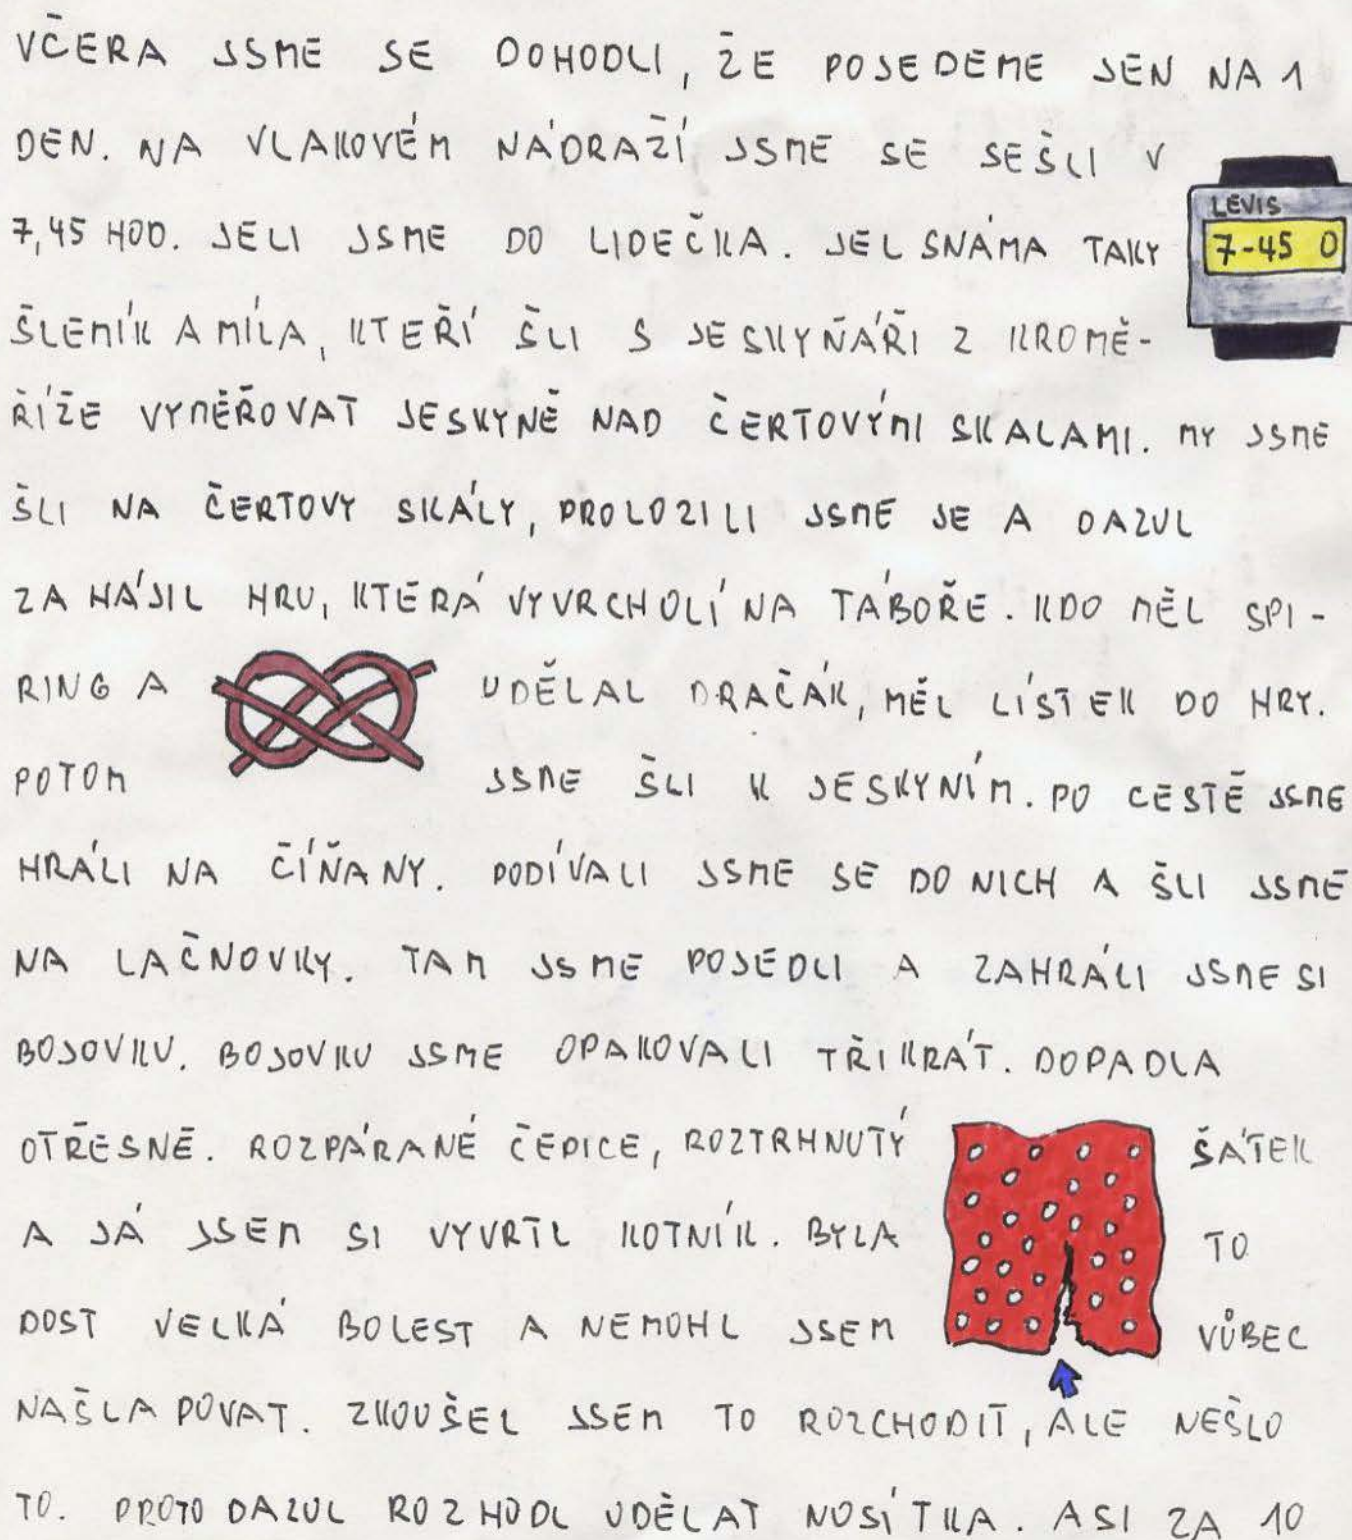 VČERA JSME SE DOHODLI, ŽE POJEDEME JEN NA 1
DEN. NA VLAKOVÉM NÁDRAŽÍ JSME SE SEŠLI V
LEVIS
7-45 0
7,45 HOD. JELI JSME DO LIDEČKA. JEL SNÁMA TAKY
ŠLEMÍK A MÍLA, KTEŘÍ ŠLI S JESKYŇÁŘI Z KROMĚ-
ŘÍŽE VYMĚŘOVAT JESKYNĚ NAD ČERTOVÝMI SKALAMI. MY JSME
ŠLI NA ČERTOVY SKÁLY, PROLOZILI JSME JE A DAZUL
ZAHÁJIL HRU, KTERÁ VYVRCHOLÍ NA TÁBOŘE. KDO MĚL SPI-
RING A UDĚLAL DRAČÁK, MĚL LÍSTEK DO HRY.
POTOM JSME ŠLI K JESKYNÍM. PO CESTĚ JSME
HRÁLI NA ČÍŇANY. PODÍVALI JSME SE DO NICH A ŠLI JSME
NA LAČNOVKY. TAM JSME POJEDLI A ZAHRÁLI JSME SI
BOJOVKU. BOJOVKU JSME OPAKOVALI TŘIKRÁT. DOPADLA
OTŘESNĚ. ROZPÁRANÉ ČEPICE, ROZTRHNUTÝ ŠÁTEK
A JÁ JSEM SI VYVRTL KOTNÍK. BYLA TO
DOST VELKÁ BOLEST A NEMOHL JSEM VŮBEC
NAŠLAPOVAT. ZKOUŠEL JSEM TO ROZCHODIT, ALE NEŠLO
TO. PROTO DAZUL ROZHODL UDĚLAT NOSÍTKA. ASI ZA 10